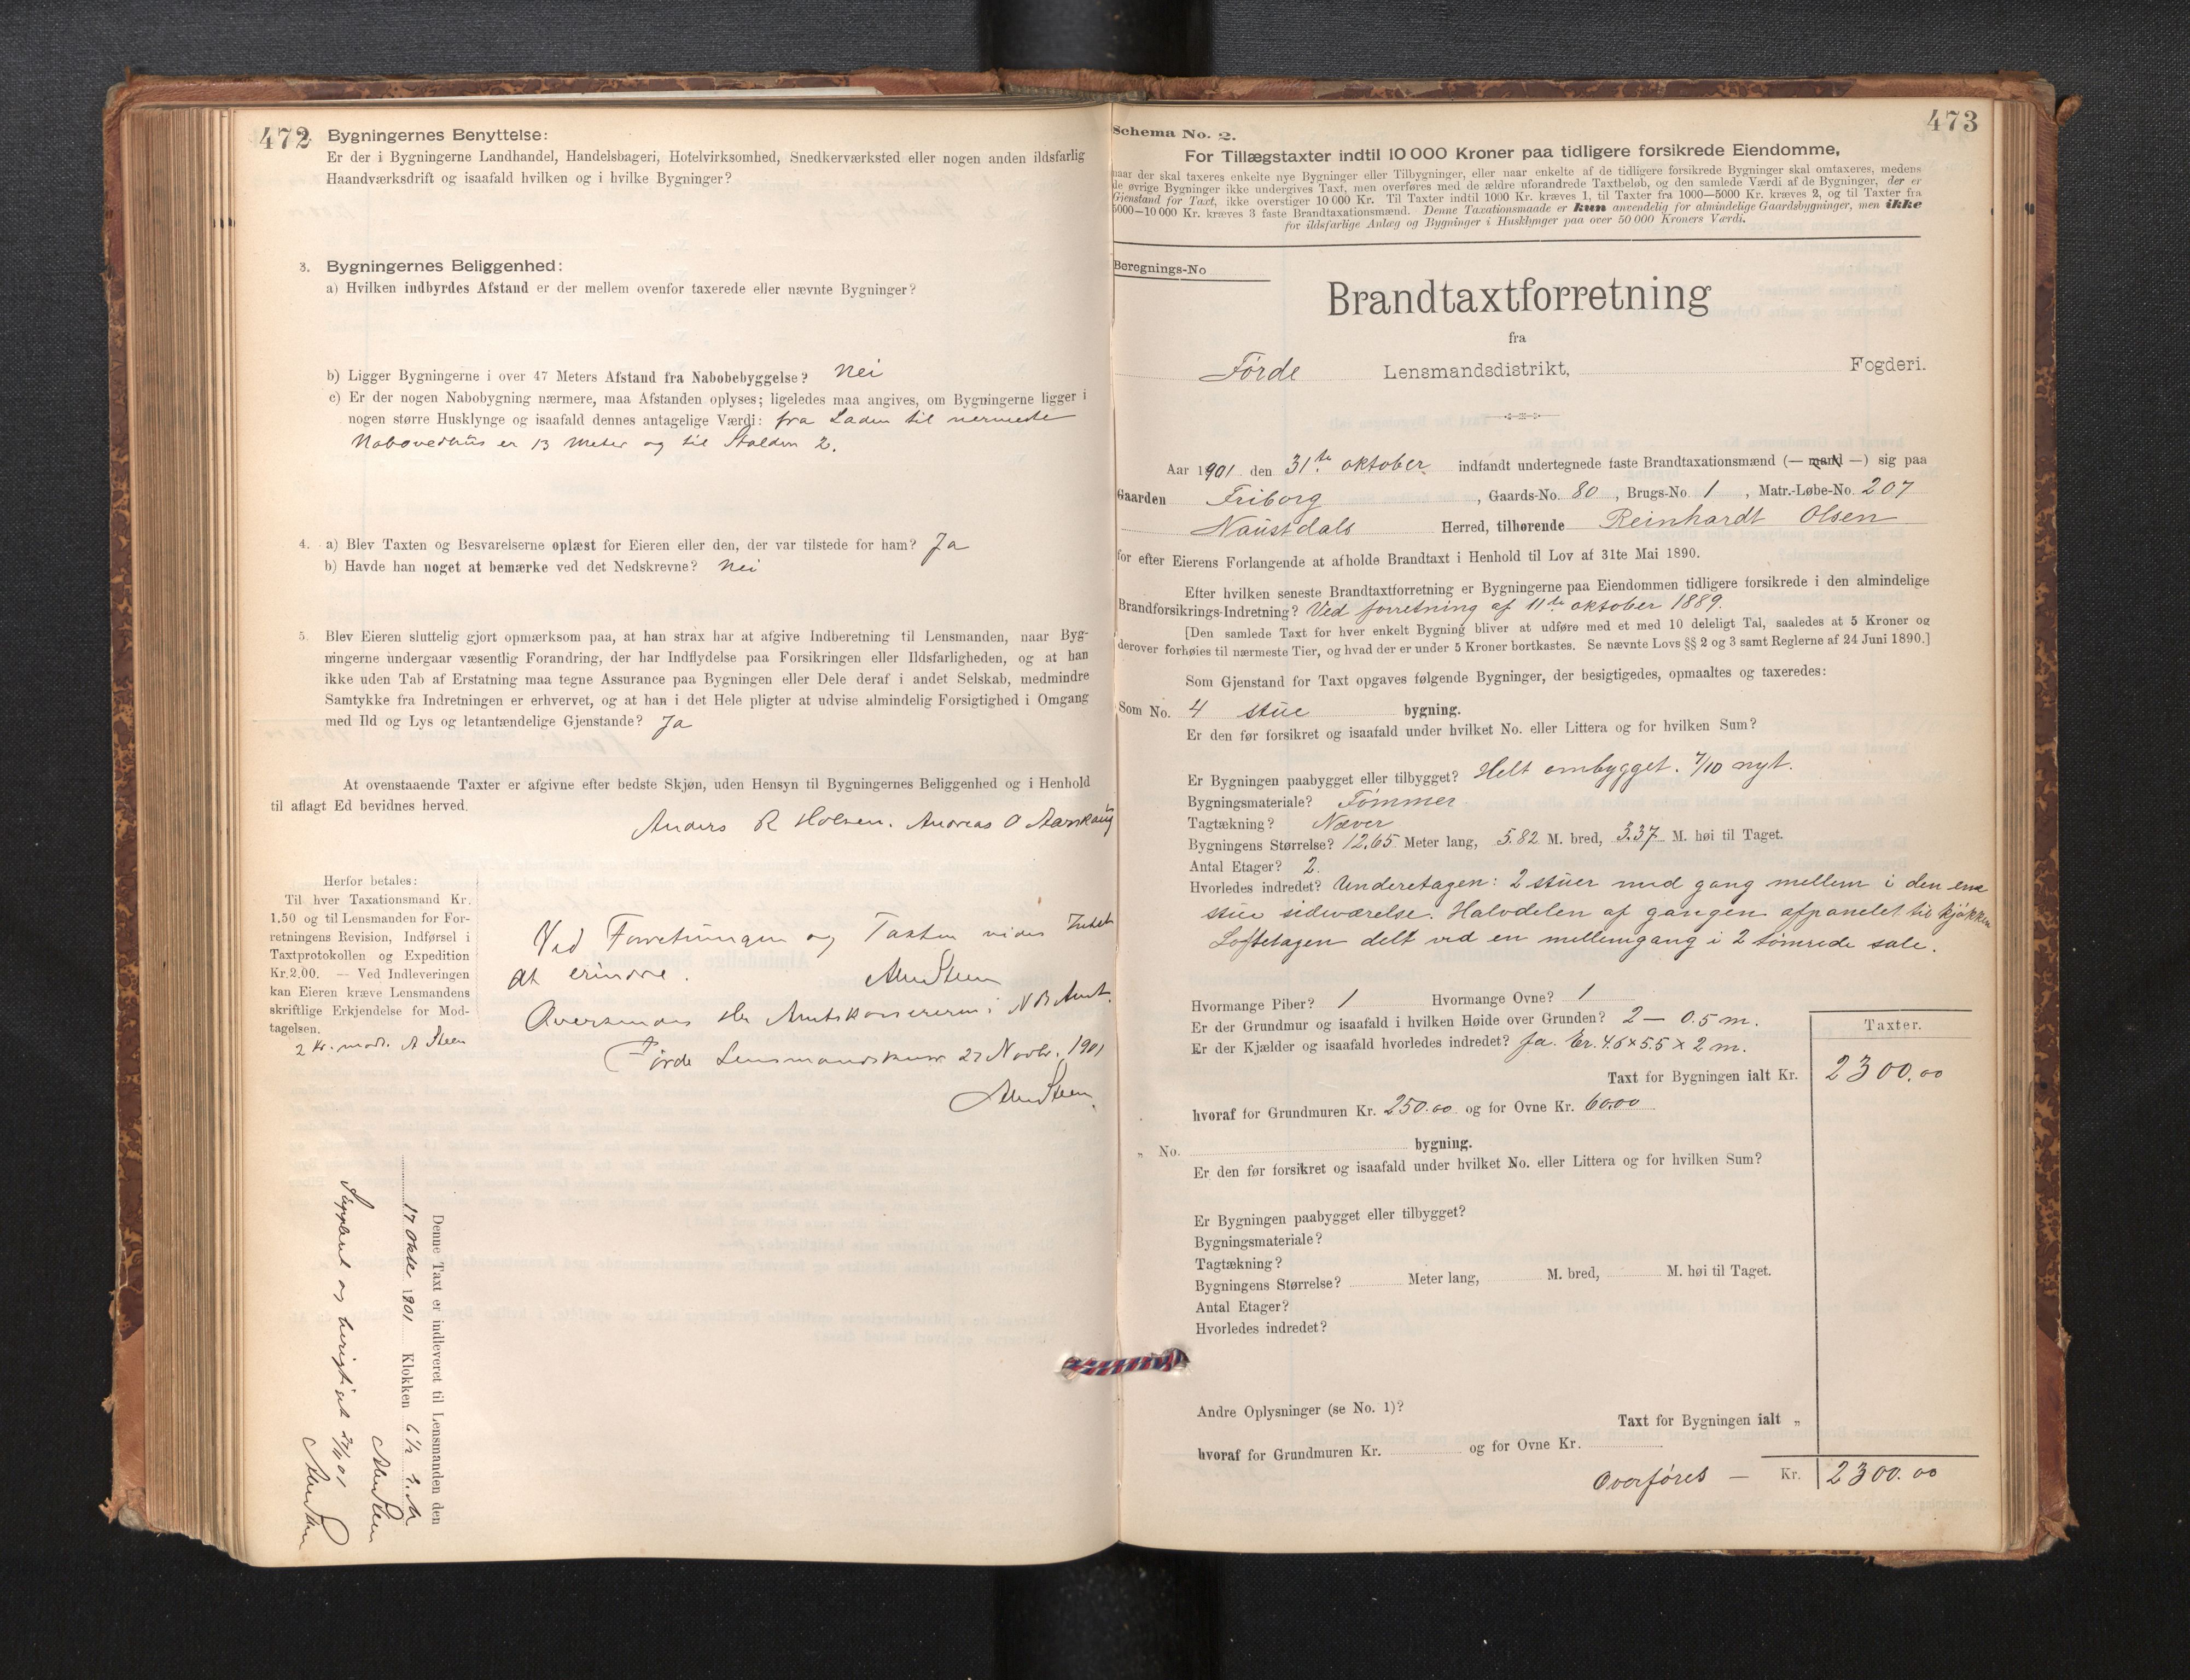 472
2. Bygningernes Benyttelse:
Er der i Bygningerne Landhandel, Handelsbageri, Hotelvirksomhed, Snedkerværksted eller nogen anden ildsfarlig
Haandværksdrift og isaafald hvilken og i hvilke Bygninger?
3. Bygningernes Beliggenhed:
a) Hvilken indbyrdes Afstand er der mellem ovenfor taxerede eller nævnte Bygninger?
b) Ligger Bygningerne i over 47 Meters Afstand fra Nabobebyggelse? Nei
c) Er der nogen Nabobygning nærmere, maa Afstanden oplyses; ligeledes maa angives, om Bygningerne ligger i
nogen større Husklynge og isaafald dennes antagelige Værdi: fra Laden til nermeste
Nabovedhus er 13 Meter og til Stalden 2.
4. a) Blev Taxten og Besvarelserne oplæst for Eieren eller den, der var tilstede for ham? Ja
b) Havde han noget at bemærke ved det Nedskrevne? Nei
5. Blev Eieren sluttelig gjort opmærksom paa, at han strax har at afgive Indberetning til Lensmanden, naar Byg-
ningerne undergaar væsentlig Forandring, der har Indflydelse paa Forsikringen eller Ildsfarligheden, og at han
ikke uden Tab af Erstatning maa tegne Assurance paa Bygningen eller Dele deraf i andet Selskab, medmindre
Samtykke fra Indretningen er erhvervet, og at han i det Hele pligter at udvise almindelig Forsigtighed i Omgang
med Ild og Lys og letantændelige Gjenstande? Ja
At ovenstaaende Taxter er afgivne efter bedste Skjøn, uden Hensyn til Bygningernes Beliggenhed og i Henhold
til aflagt Ed bevidnes herved.
Anders R Holsen. Andreas O
Herfor betales:
Til hver Taxationsmand Kr.
1.50 og til Lensmanden for For-
retningens Revision, Indførsel i
Taxtprotokollen og Expedition
Kr. 2.00. — Ved Indleveringen
kan Eieren kræve Lensmandens
skriftlige Erkjendelse for Mod-
tagelsen.
2 Kr. modt. A Steen
Ved Forretningen og Taxten vides Intet
at erindre.
Oversendes Hr Amtskassereren i N B Amt.
Førde Lensmandskontor 27 Novbr. 1901
Denne Taxt er indleveret til Lensmanden den
17 Oktbr 1901 Klokken 6 1/2
473
Schema No. 2.
For Tillægstaxter indtil 10 000 Kroner paa tidligere forsikrede Eiendomme,
naar der skal taxeres enkelte nye Bygninger eller Tilbygninger, eller naar enkelte af de tidligere forsikrede Bygninger skal omtaxeres, medens
de øvrige Bygninger ikke undergives Taxt, men overføres med de ældre uforandrede Taxtbeløb, og den samlede Værdi af de Bygninger, der er
Gjenstand for Taxt, ikke overstiger 10 000 Kr. Til Taxter indtil 1000 Kr. kræves 1, til Taxter fra 1000—5000 Kr. kræves 2, og til Taxter fra
5000—10 000 Kr. kræves 3 faste Brandtaxationsmænd. Denne Taxationsmaade er kun anvendelig for almindelige Gaardsbygninger, men ikke
for ildsfarlige Anlæg og Bygninger i Husklynger paa over 50 000 Kroners Værdi.
Beregnings-No
Brandtaxtforretning
fra
Førde Lensmandsdistrikt, Fogderi.
Aar 1901 den 31te oktober indfandt undertegnede faste Brandtaxationsmænd (— mand —) sig paa
Gaarden Friborg, Gaards-No. 80, Brugs-No. 1, Matr.-Løbe-No. 207
Naustdals Herred, tilhørende Reinhardt Olsen
for efter Eierens Forlangende at afholde Brandtaxt i Henhold til Lov af 31te Mai 1890.
Efter hvilken seneste Brandtaxtforretning er Bygningerne paa Eiendommen tidligere forsikrede i den almindelige
Brandforsikrings-Indretning? Ved forretning af 11te oktober 1889.
[Den samlede Taxt for hver enkelt Bygning bliver at udføre med et med 10 deleligt Tal, saaledes at 5 Kroner og
derover forhøies til nærmeste Tier, og hvad der er under 5 Kroner bortkastes. Se nævnte Lovs §§ 2 og 3 samt Reglerne af 24 Juni 1890.]
Som Gjenstand for Taxt opgaves følgende Bygninger, der besigtigedes, opmaaltes og taxeredes:
Som No. 4 stue bygning.
Er den før forsikret og isaafald under hvilket No. eller Littera og for hvilken Sum?
Er Bygningen paabygget eller tilbygget? Helt ombygget. 7/10 nyt.
Bygningsmateriale? Tømmer
Tagtækning? Næver
Bygningens Størrelse? 12.65 Meter lang, 5.82 M. bred, 3.37 M. høi til Taget.
Antal Etager? 2.
Hvorledes indredet? Underetagen: 2 stuer med gang mellem i den ene
stue sideværelse. Halvdelen af gangen afpanelet til kjøkken
Loftetagen delt ved en mellemgang i 2 tømrede sale.
Hvormange Piber? 1 Hvormange Ovne? 1
Er der Grundmur og isaafald i hvilken Høide over Grunden? 2 — 0.5 m.
Er der Kjælder og isaafald hvorledes indredet? Ja. Er. 4.6 × 5.5 × 2 m.
Taxter.
Taxt for Bygningen ialt Kr. 2300.00
hvoraf for Grundmuren Kr. 250.00 og for Ovne Kr. 60.00
„ No. bygning.
Er den før forsikret og isaafald under hvilket No. eller Littera og for hvilken Sum?
Er Bygningen paabygget eller tilbygget?
Bygningsmateriale?
Tagtækning?
Bygningens Størrelse? Meter lang, M. bred, M. høi til Taget.
Antal Etager?
Hvorledes indredet?
Andre Oplysninger (se No. 1)?
Taxt for Bygningen ialt „
hvoraf for Grundmuren Kr. og for Ovne Kr.
Overføres — Kr. 2300.00